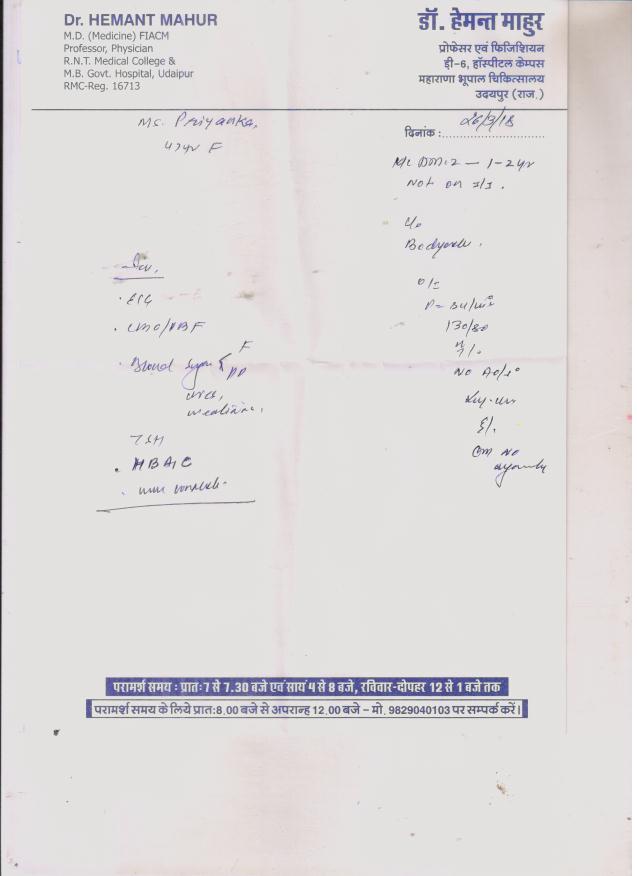 Dr. HEMANT MAHUR
M.D. (Medicine) FIACM
Professor, Physician
R.N.T. Medical College &
M.B. Govt. Hospital, Udaipur
RMC-Reg. 16713
डॉ. हेमन्त माहुर
प्रोफेसर एवं फिजिशियन
डी-6, हॉस्पीटल केम्पस
महाराणा भूपाल चिकित्सालय
उदयपुर (राज.)
Ms. Priyanka,
F
दिनांक : 26/3/18
1-2 yr
Not on
Bodyache.
O/E
130/80
No
No
ECG
CBC/PBF
Blood Sugar F
PP
urea,
creatinine,
TSH
HBA1C
urine complete
परामर्श समय : प्रातः 7 से 7.30 बजे एवं सायं 4 से 8 बजे, रविवार-दोपहर 12 से 1 बजे तक
परामर्श समय के लिये प्रात:8.00 बजे से अपरान्ह 12.00 बजे – मो. 9829040103 पर सम्पर्क करें।